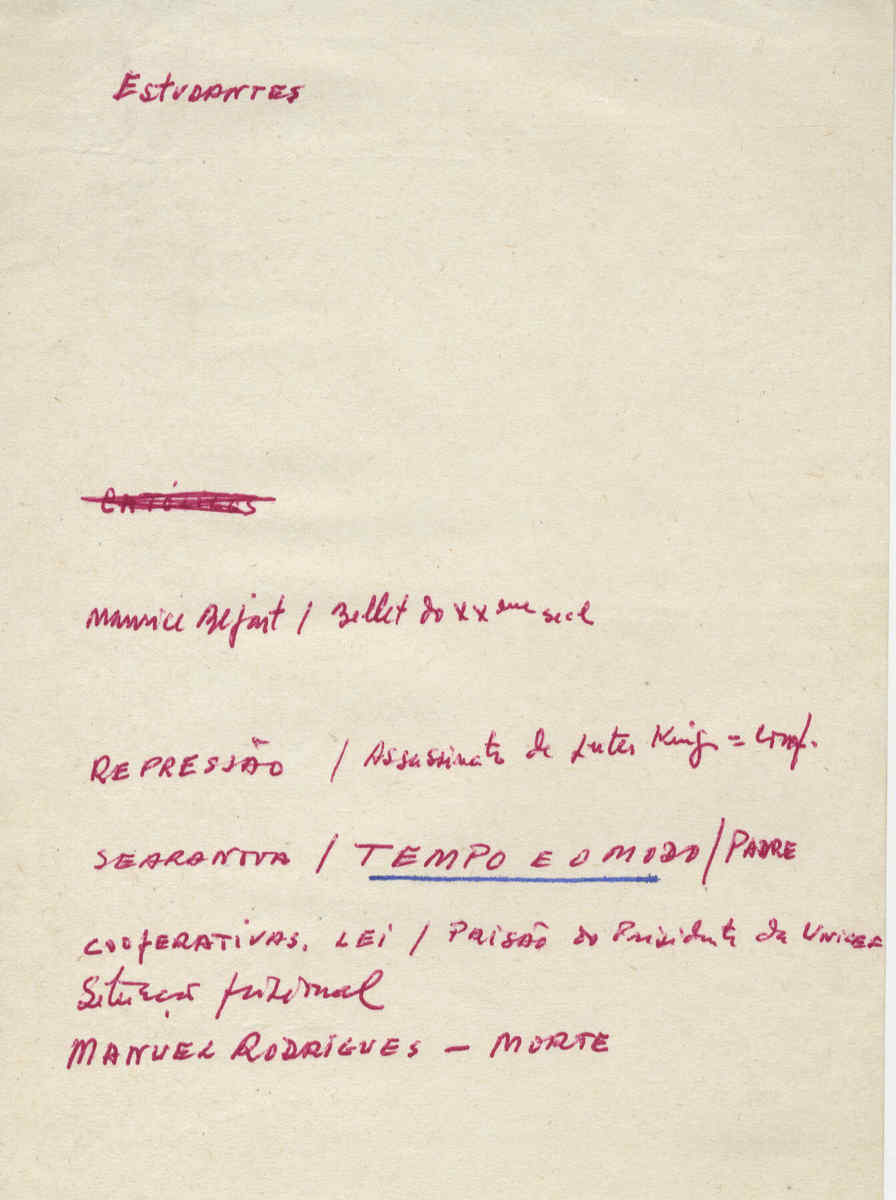 ESTUDANTES
CATÓLICAS
Maurice Bejart / Bellet do XXeme secl
REPRESSÃO / Assassinato de Luter King =
SEARA NOVA / TEMPO E O MODO / PADRE
COOPERATIVAS. LEI / PRISÃO do Presidente da UNICEF
Situação prisional
MANUEL RODRIGUES – MORTE